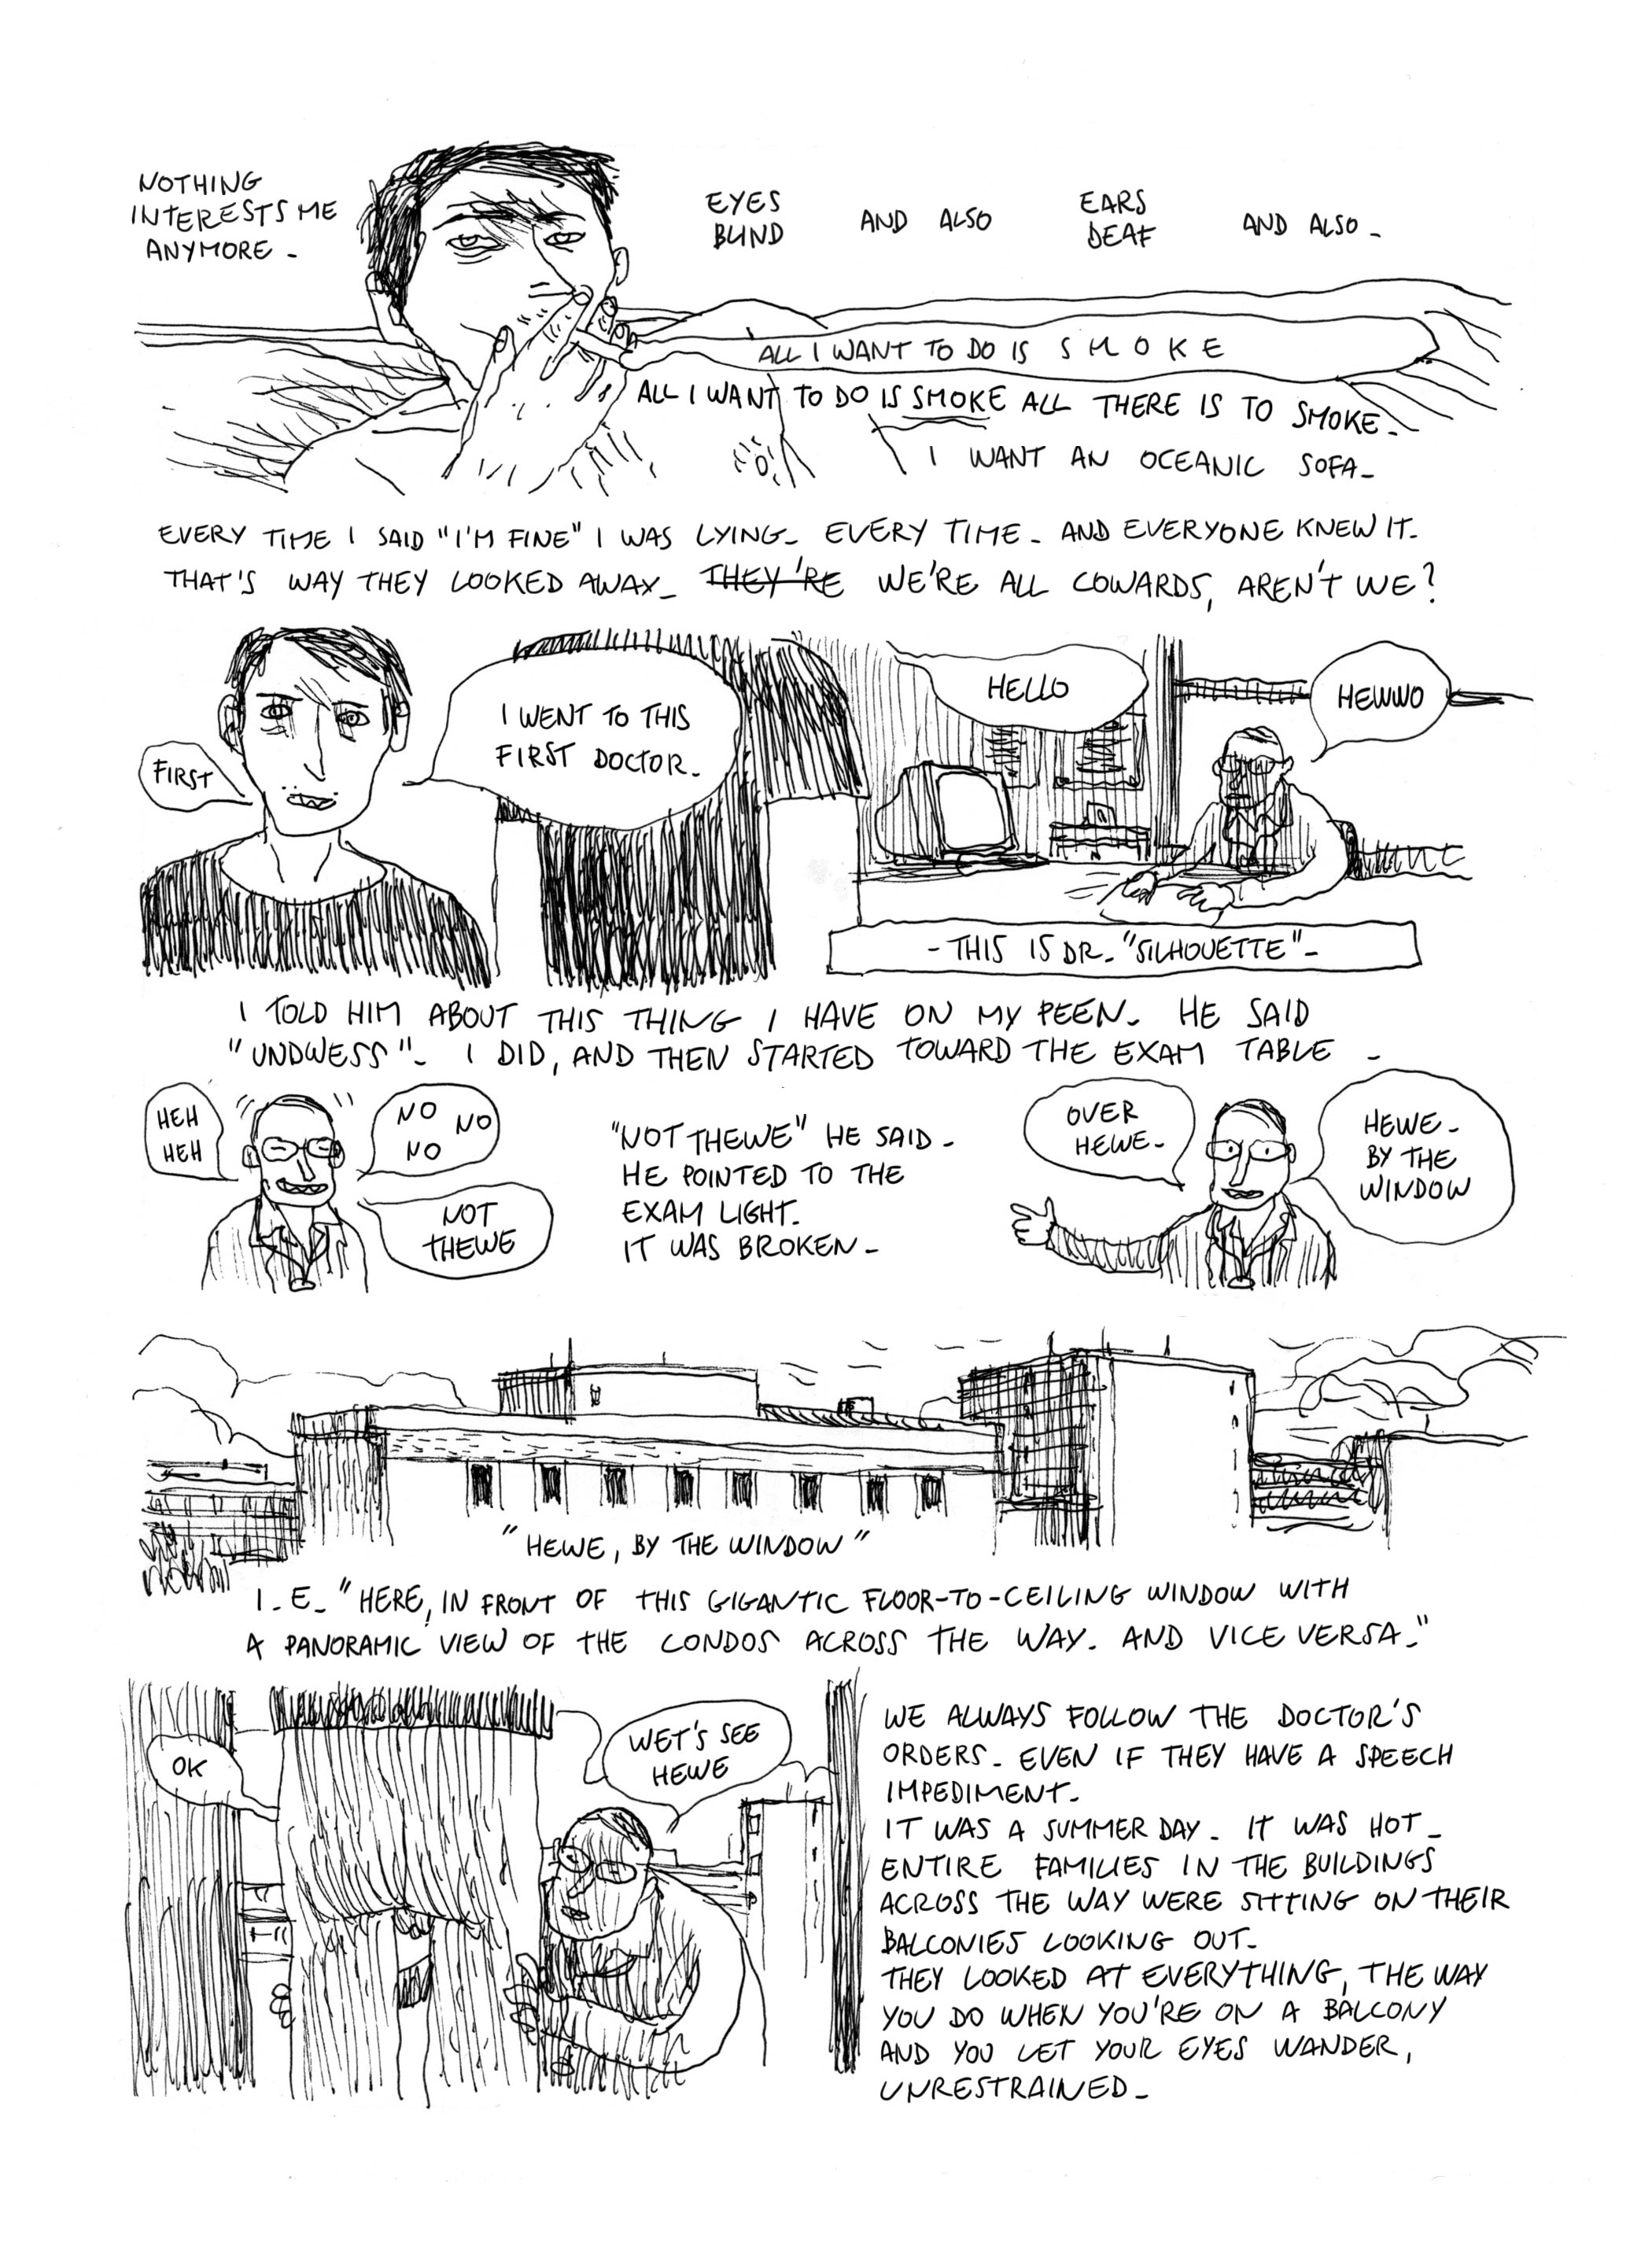 NOTHING
INTERESTS ME
ANYMORE -
EYES
BLIND
AND ALSO
EARS
DEAF
AND ALSO -
ALL I WANT TO DO IS S M O K E
ALL I WANT TO DO IS SMOKE ALL THERE IS TO SMOKE -
I WANT AN OCEANIC SOFA -
EVERY TIME I SAID "I'M FINE" I WAS LYING - EVERY TIME - AND EVERYONE KNEW IT.
THAT'S WAY THEY LOOKED AWAY - THEY'RE WE'RE ALL COWARDS, AREN'T WE?
FIRST
I WENT TO THIS
FIRST DOCTOR -
HELLO
HEWWO
- THIS IS DR - "SILHOUETTE" -
I TOLD HIM ABOUT THIS THING I HAVE ON MY PEEN - HE SAID
"UNDWESS" - I DID, AND THEN STARTED TOWARD THE EXAM TABLE -
HEH
HEH
NO NO
NO
NOT
THEWE
"NOT THEWE" HE SAID -
HE POINTED TO THE
EXAM LIGHT.
IT WAS BROKEN -
OVER
HEWE -
HEWE -
BY THE
WINDOW
"HEWE, BY THE WINDOW"
I - E - "HERE, IN FRONT OF THIS GIGANTIC FLOOR-TO-CEILING WINDOW WITH
A PANORAMIC VIEW OF THE CONDOS ACROSS THE WAY - AND VICE VERSA -"
OK
WET'S SEE
HEWE
WE ALWAYS FOLLOW THE DOCTOR'S
ORDERS - EVEN IF THEY HAVE A SPEECH
IMPEDIMENT -
IT WAS A SUMMER DAY - IT WAS HOT -
ENTIRE FAMILIES IN THE BUILDINGS
ACROSS THE WAY WERE SITTING ON THEIR
BALCONIES LOOKING OUT -
THEY LOOKED AT EVERYTHING, THE WAY
YOU DO WHEN YOU'RE ON A BALCONY
AND YOU LET YOUR EYES WANDER,
UNRESTRAINED -